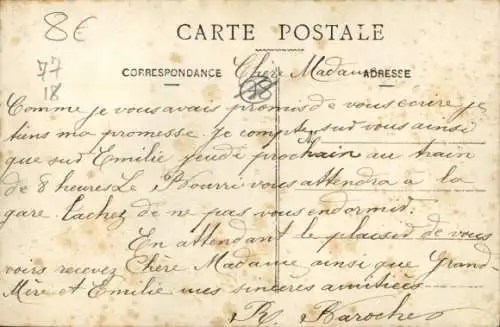 8€
CARTE POSTALE
77
18
CORRESPONDANCE
ADRESSE
78
Chère Madame
Comme je vous avais promis de vous ecrire je
tiens ma promesse. Je compte sur vous ainsi
que sur Emilie jeudi prochain au train
de 8 heures Le Nourri vous attendra a la
gare. tachez de ne pas vous endormir.
En attendant le plaisir de vous
voir recevez Chère Madame ainsi que Grand
Mère et Emilie mes sincères amitiées
R. Baroche